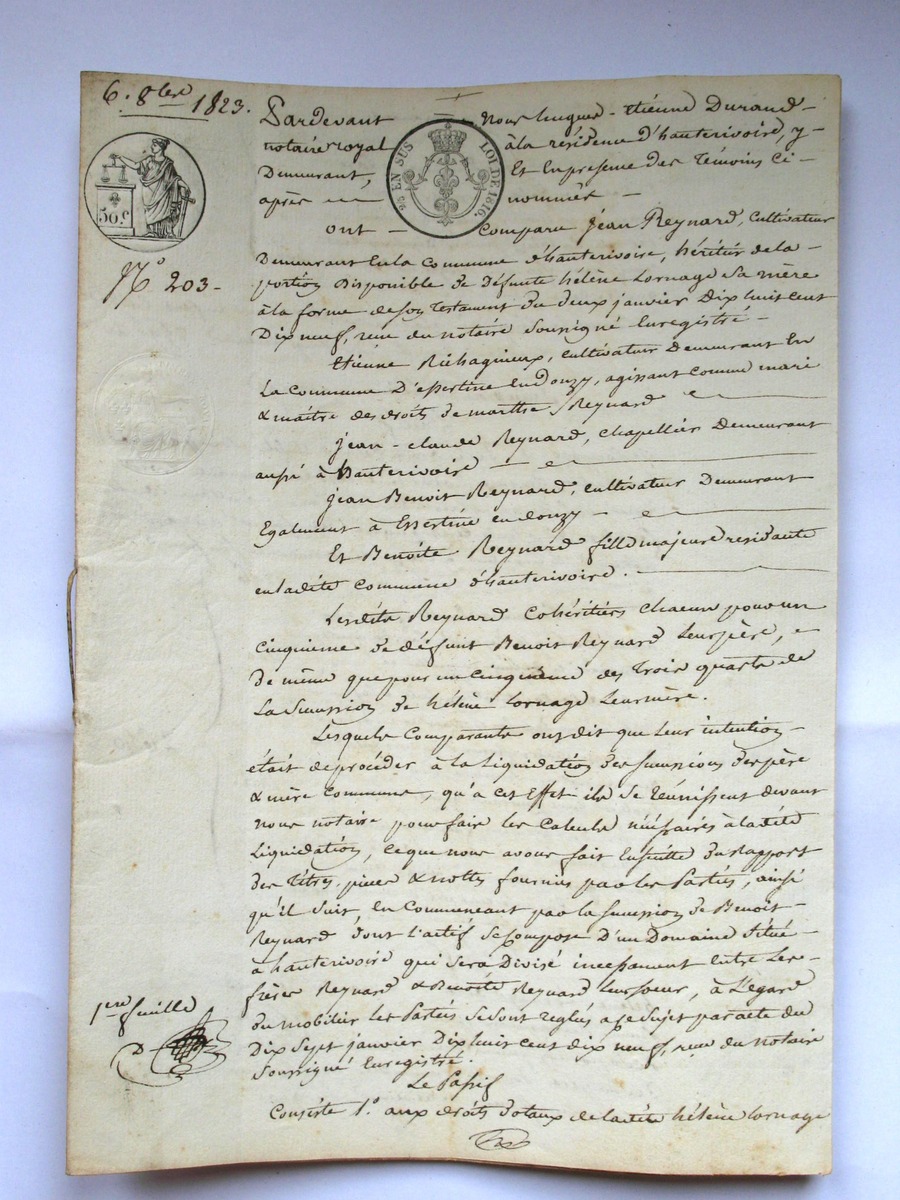 6. 8bre 1823.
Pardevant Nous hugues-Etiénne Durand-
notaire royal à la résidence d'hauterivoire, y-
Demeurant, Et En presence des Témoins Ci-
après nommés -
EN SUS LOI DE 1816.
50 C
ont - Comparu jean Reynard, Cultivateur
Demeurant En la Commune d'hauterivoire, héritier de la -
portion Disponible de Défunte hélène Lornage Sa mère
à la forme de son Testament du deux janvier Dix huit cent
Dix neuf, reçu du notaire Soussigné Enregistré -
N° 203-
Etienne cultivateur Demeurant En
La Commune D'essertine En Donzy, agissant comme mari
& maître des droits de marthe Reynard
jean-claude Reynard, Chapellier Demeurant
aussi à hauterivoire -
jean Benoit Reynard, cultivateur Demeurant
Egalement à Essertine en donzy -
Et Benoite Reynard fille majeure residante
en ladite commune d'hauterivoire.
Lesdits Reynard Cohéritiers chacun pour un
Cinquieme de défunt Benoit Reynard Leur père,
de même que pour un Cinquieme des Trois quarts de
La Succession de hélène Lornage Leur mère.
Lesquels Comparants ont dit que Leur intention -
était de procéder à la Liquidation des successions des père
& mère Communs, qu'à cet Effet ils Se réunissent devant
nous notaire pour faire les Calculs nécessaires à ladite
Liquidation, ce que nous avons fait Ensuitte du Rapport
des Titres, pieces & nottes fournies par les Parties, ainsi
qu'il suit, En Commencant par la succession de Benoit-
Reynard dont l'actif Se compose D'un Domaine situé -
à hauterivoire qui Sera Divisé incessament Entre Les-
frères Reynard & Benoite Reynard Leur soeur, à L'egard
du mobilier les Parties Se Sont reglés a ce Sujet par acte du
Dix Sept janvier Dix huit cent dix neuf, reçu du notaire
Soussigné Enregistré.
1ere feuille
D
Le Passif
Consiste 1° aux droits dotaux de ladite hélène Lornage